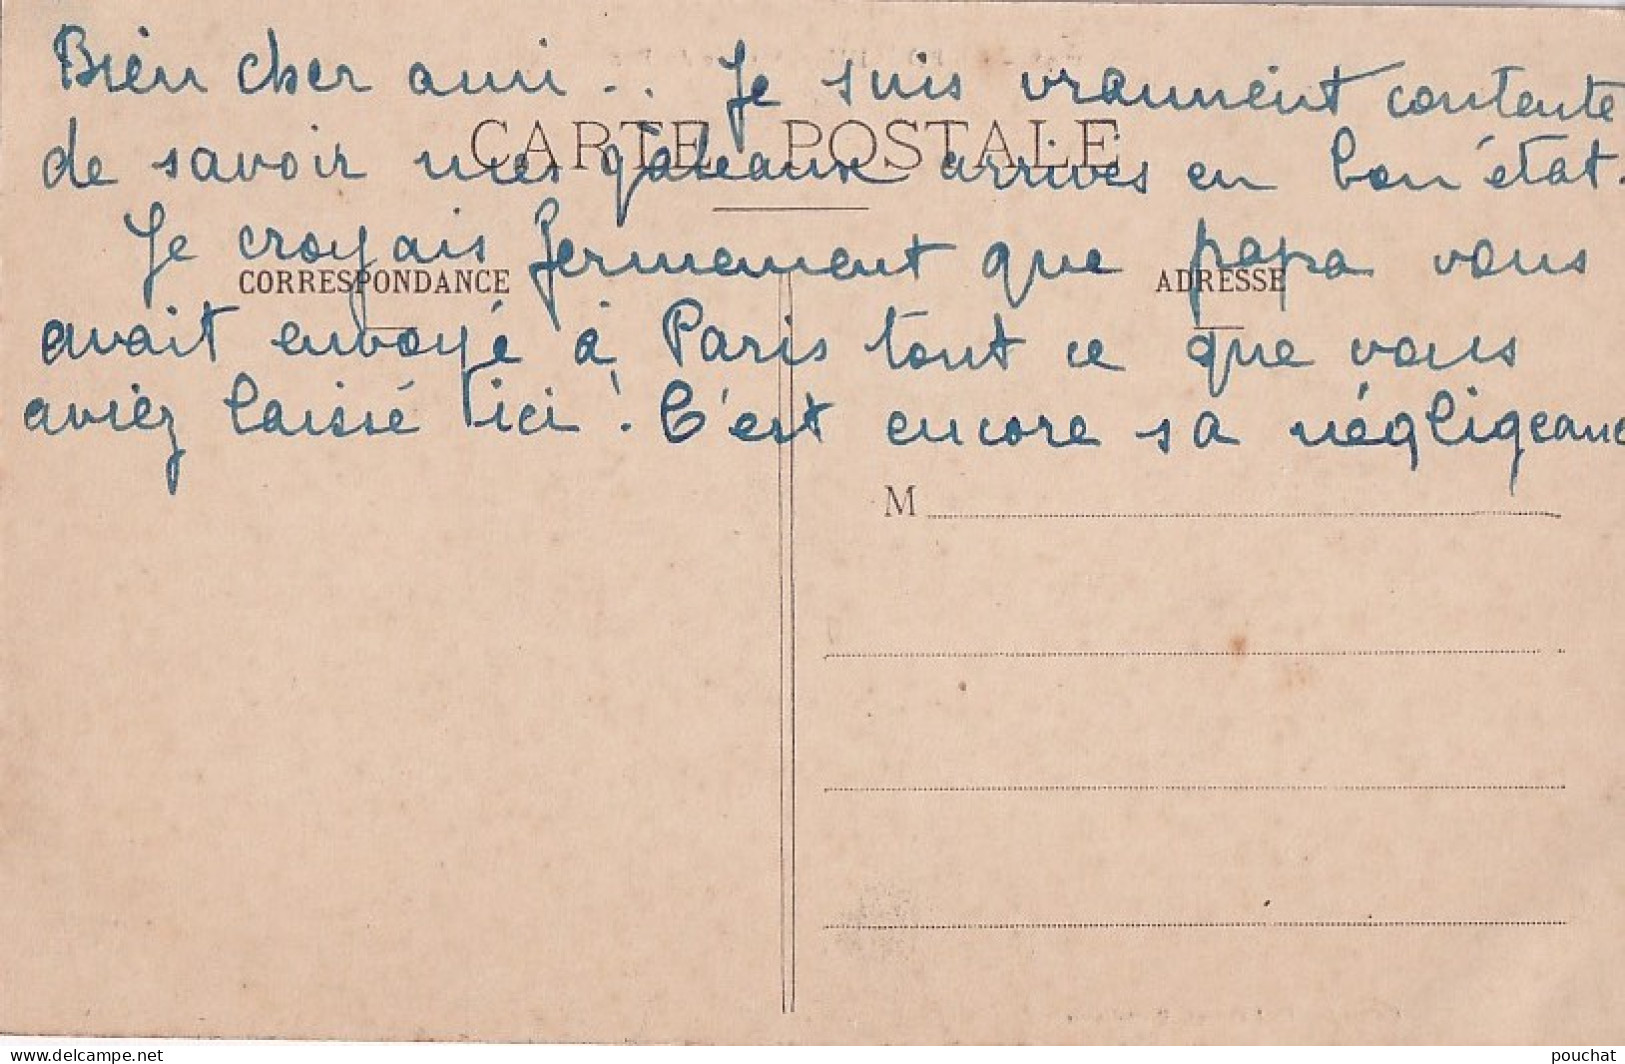 Bien cher ami... Je suis vraiment contente
CARTE POSTALE
de savoir mes gâteaux arrivés en bon état.
Je croyais fermement que papa vous
CORRESPONDANCE
ADRESSE
avait envoyé à Paris tout ce que vous
aviez laissé ici! C'est encore sa négligeanc
M
delcampe.net
pouchat